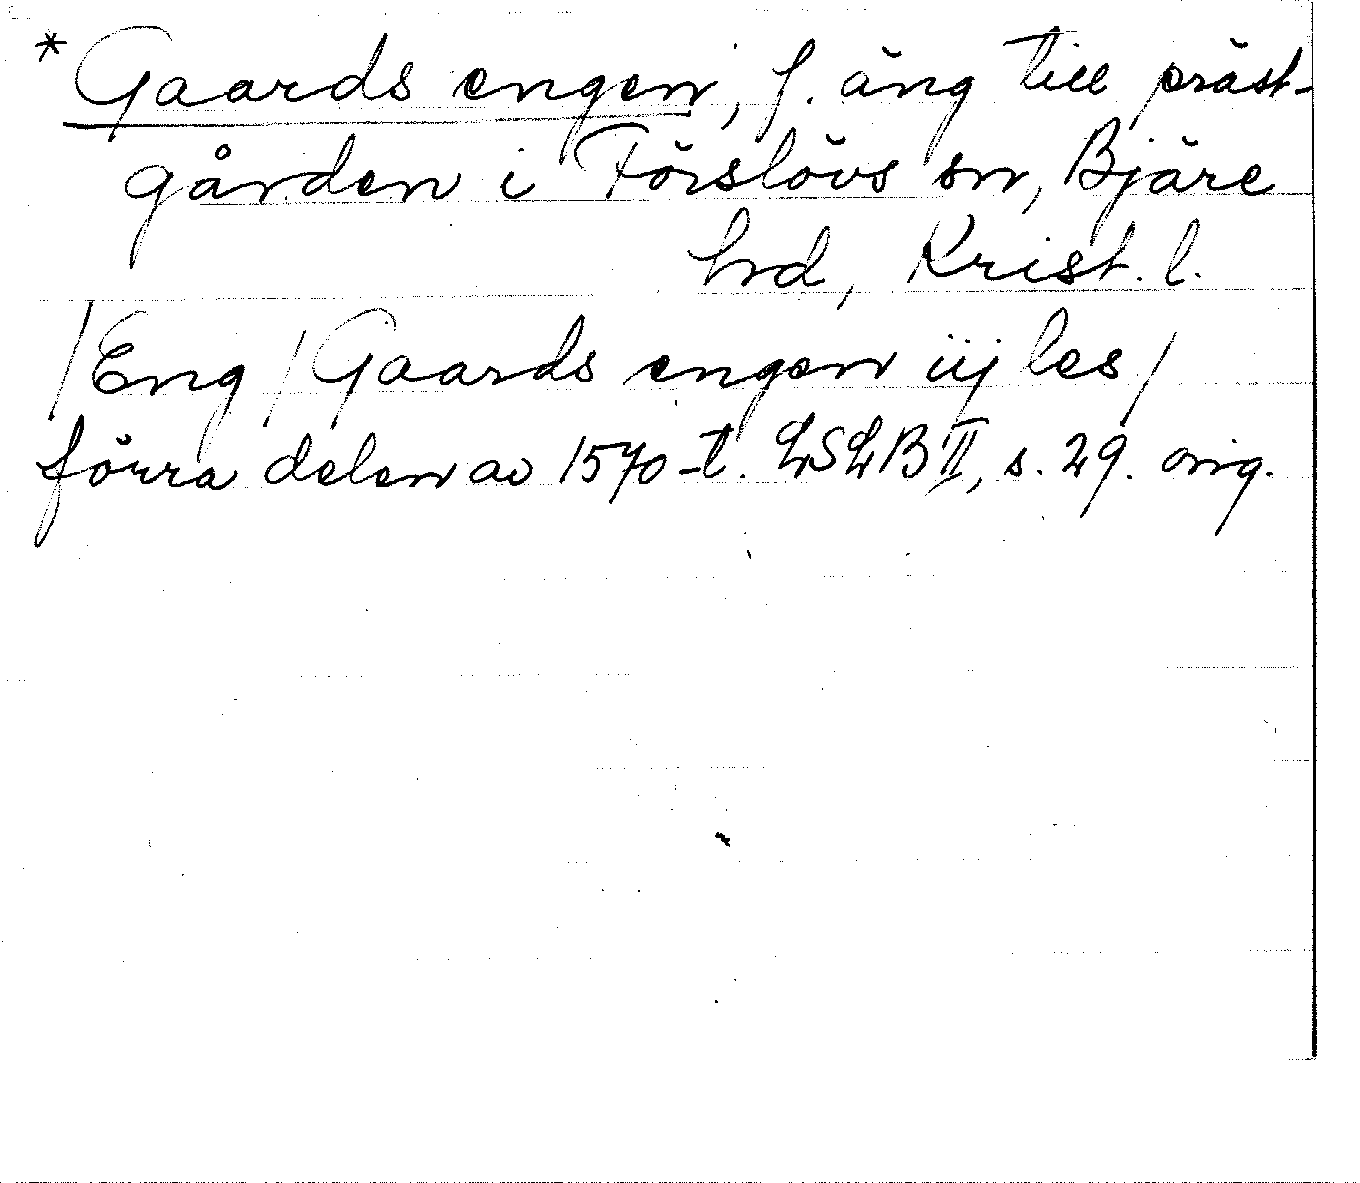 *Gaards engen, f. äng till präst-
gården i Förslövs sn, Bjäre
hrd, Krist. l.
/Eng/Gaards engen iij les/
förra delen av 1570-t. LSLB II, s. 29. orig.